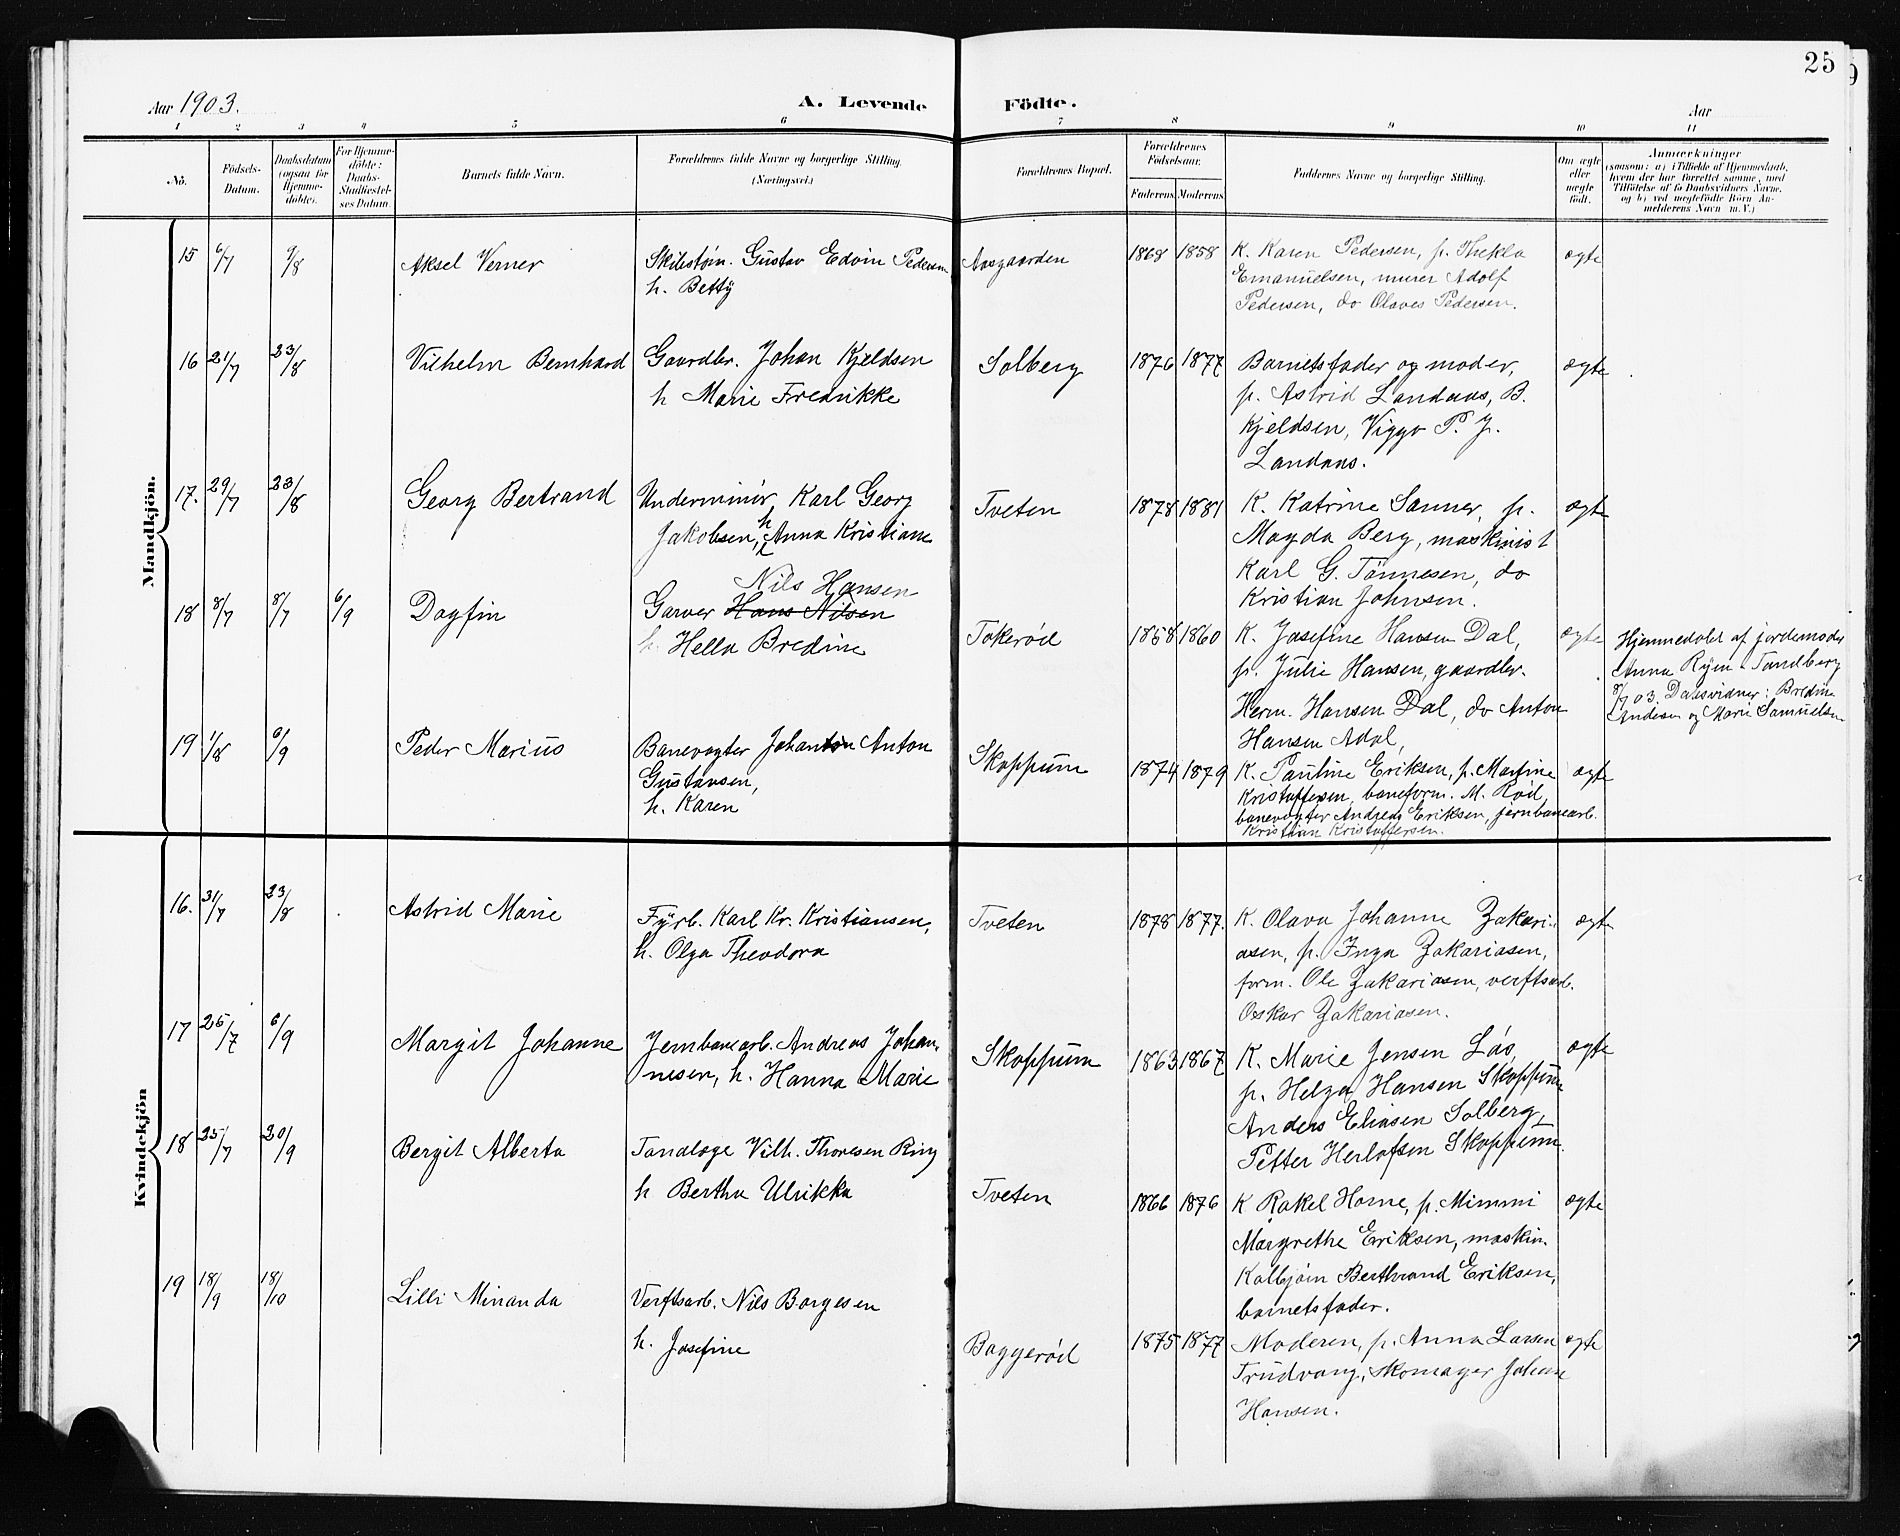 25
Aar 1903.
A. Levende Födte.
Aar
1 2 3 4 5 6 7 8 9 10 11
No.
Födsels-Datum.
Daabsdatum (ogsaa for Hjemmedöbte).
For Hjemmedöbte: Daabs-Stadfæstelses Datum.
Barnets fulde Navn.
Forældrenes fulde Navne og borgerlige Stilling. (Næringsvei.)
Forældrenes Bopæl.
Forældrenes Födselsaar.
Faderens Moderens
Faddernes Navne og borgerlige Stilling.
Om ægte eller uægte födt.
Anmærkninger
(saasom: a) i Tilfælde af Hjemmedaab, hvem der har forrettet samme, med Tilföielse af to Daabsvidners Navne, og b) ved uægtefödte Börn Anmelderens Navn m.V.)
Mandkjön.
15 6/7 9/8 Aksel Verner
Skibstøm. Gustav Edvin Pedersen
h. Betty
Aasgaarden 1868 1858
K. Karen Pedersen, p. Thekla
Emanuelsen, murer Adolf
Pedersen, do Olaves Pedersen.
ægte
16 21/7 23/8 Vilhelm Bernhard
Gaardbr. Johan Kjeldsen
h Marie Fredrikke
Solberg 1876 1877
Barnets fader og moder,
p. Astrid Landaas, B.
Kjeldsen, Viggo P. J.
Landaas.
ægte
17. 29/7 23/8 Georg Bertrand
Underminér Karl Georg
Jakobsen, h Anna Kristiane
Tveten 1878 1881
K. Katrine Sanner, p.
Magda Berg, maskinist
Karl G. Tönnesen, do
Kristian Johnsen.
ægte
18 8/7 8/7 6/9 Dagfin
Nils Hansen
Garver Hans Nilsen
h. Hella Bredine
Tokerød 1858 1860
K. Josefine Hansen Dal,
p. Julie Hansen, gaardbr.
Herm. Hansen Dal, do Anton
Hansen Adal,
ægte
Hjemmedøbt af jordemoder
Anna Ryen Tandberg
8/7 03. Daabsvidner: Bredine
og Marie Samuelsen
19 1/8 6/9 Peder Marius
Banevogter Johan Anton
Gustavsen,
h. Karen
Skoppum 1874 1879
K. Pauline Eriksen, p. Martine
Kristoffersen, baneform. M. Röd,
banevogter Andreas Eriksen, jernbanearb.
Kristian Kristoffersen.
ægte
Kvindekjön
16. 31/7 23/8 Astrid Marie
Fyrb. Karl Kr. Kristiansen,
h. Olga Theodora
Tveten 1878 1877.
K. Olava Johanne Zakari-
asen, p. Inga Zakariasen,
form. Ole Zakariasen, verftsarb.
Oskar Zakariasen.
ægte
17 25/7 6/9 Margit Johanne
Jernbanearb. Andreas Johan-
nesen, h. Hanna Marie
Skoppum 1863 1867
K. Marie Jensen Lós,
p. Helga Hansen Skoppum
Anders Eliasen Solberg,
Petter Herlofsen Skoppum.
ægte
18 25/7 20/9 Bergit Alberta
Tandlæge Vilh. Thoresen Ring
h Bertha Ulrikka
Tveten 1866 1876
K Rakel Horne, p. Mimmi
Margrethe Eriksen, maskin.
Kolbjörn Berthrand Eriksen,
barnets fader.
ægte
19 18/9 18/10 Lilli Minanda
Verftsarb. Nils Borgesen
h. Josefine
Baggerød 1875 1877
Moderen, p. Anna Larsen
Trudvang, Skomager Johan
Hansen.
ægte